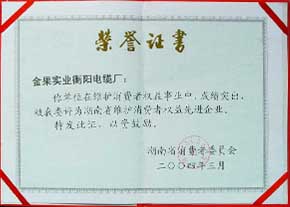 荣誉证书
金果实业衡阳电缆厂：
你单位在维护消费者权益事业中，成绩突出，
被我委评为湖南省维护消费者权益先进企业，
特发此证，以资鼓励。
湖南省消费者委员会
二〇〇四年三月